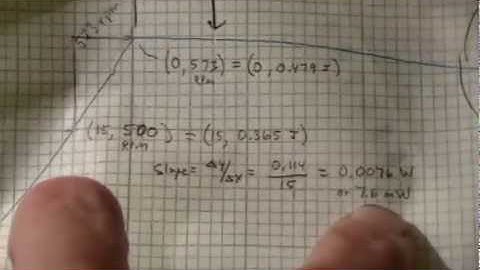 573 rpm
(0, 573) = (0, 0.479 J)
RPM
(15, 500) = (15, 0.365 J)
RPM
Slope = ΔY/ΔX = 0.114/15 = 0.0076 W
or 7.6 mW